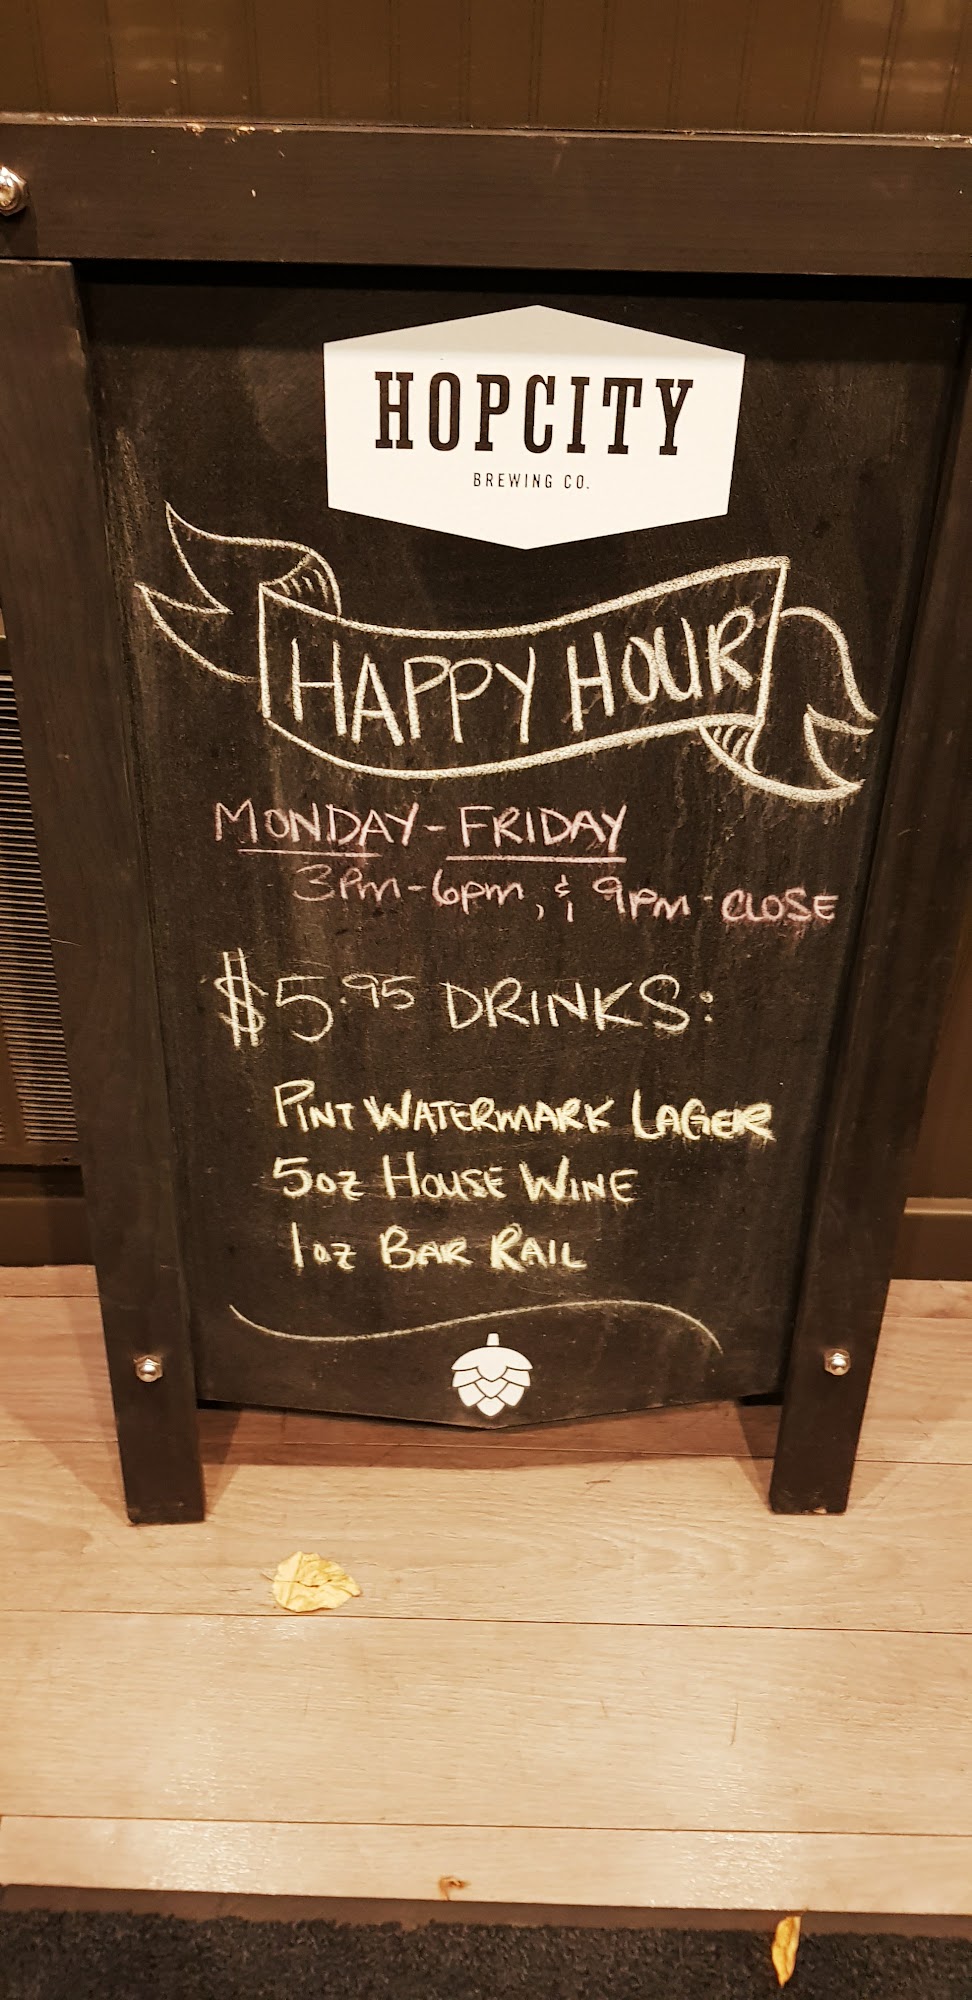 HOPCITY
BREWING CO.
HAPPY HOUR
MONDAY-FRIDAY
3PM-6PM, & 9PM-CLOSE
$5.95 DRINKS:
PINT WATERMARK LAGER
5oz HOUSE WINE
1oz BAR RAIL